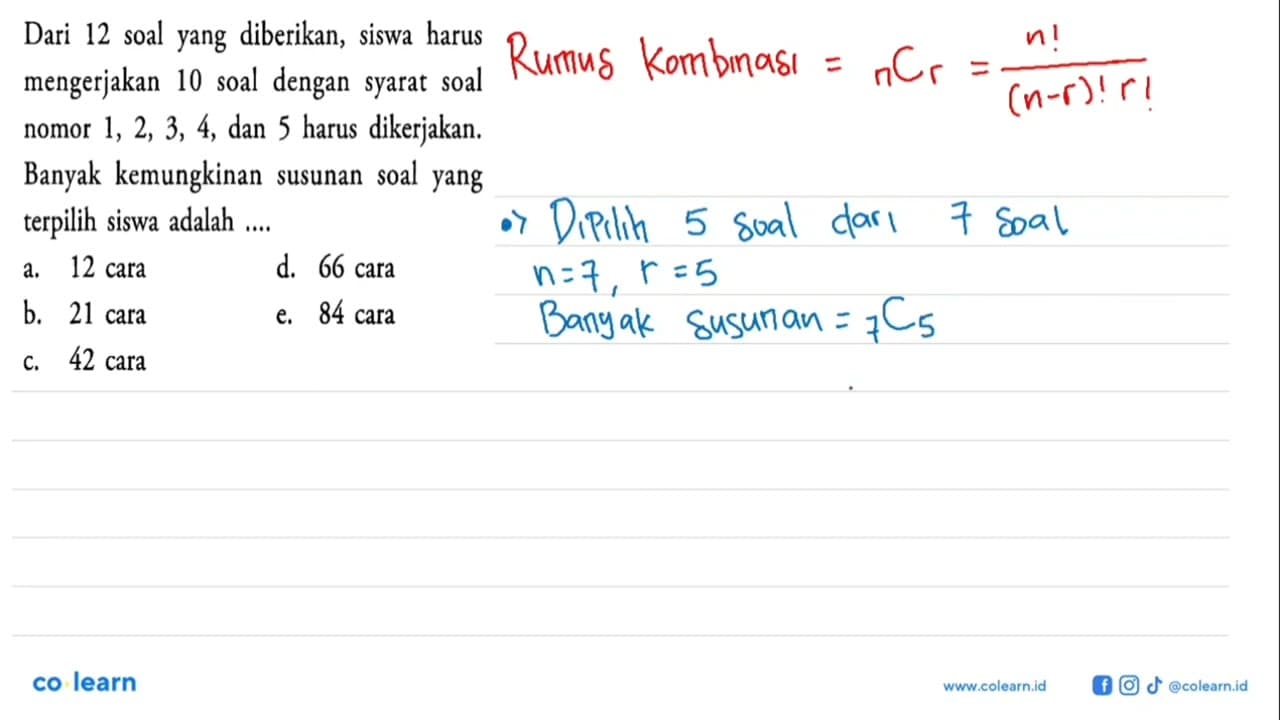 Dari 12 soal yang diberikan, siswa harus
mengerjakan 10 soal dengan syarat soal
nomor 1, 2, 3, 4, dan 5 harus dikerjakan.
Banyak kemungkinan susunan soal yang
terpilih siswa adalah ....
a. 12 cara
d. 66 cara
b. 21 cara
e. 84 cara
c. 42 cara
Rumus Kombinasi = nCr = n! / (n-r)! r!
•> Dipilih 5 soal dari 7 soal
n=7, r=5
Banyak susunan = 7C5
co learn
www.colearn.id
@colearn.id